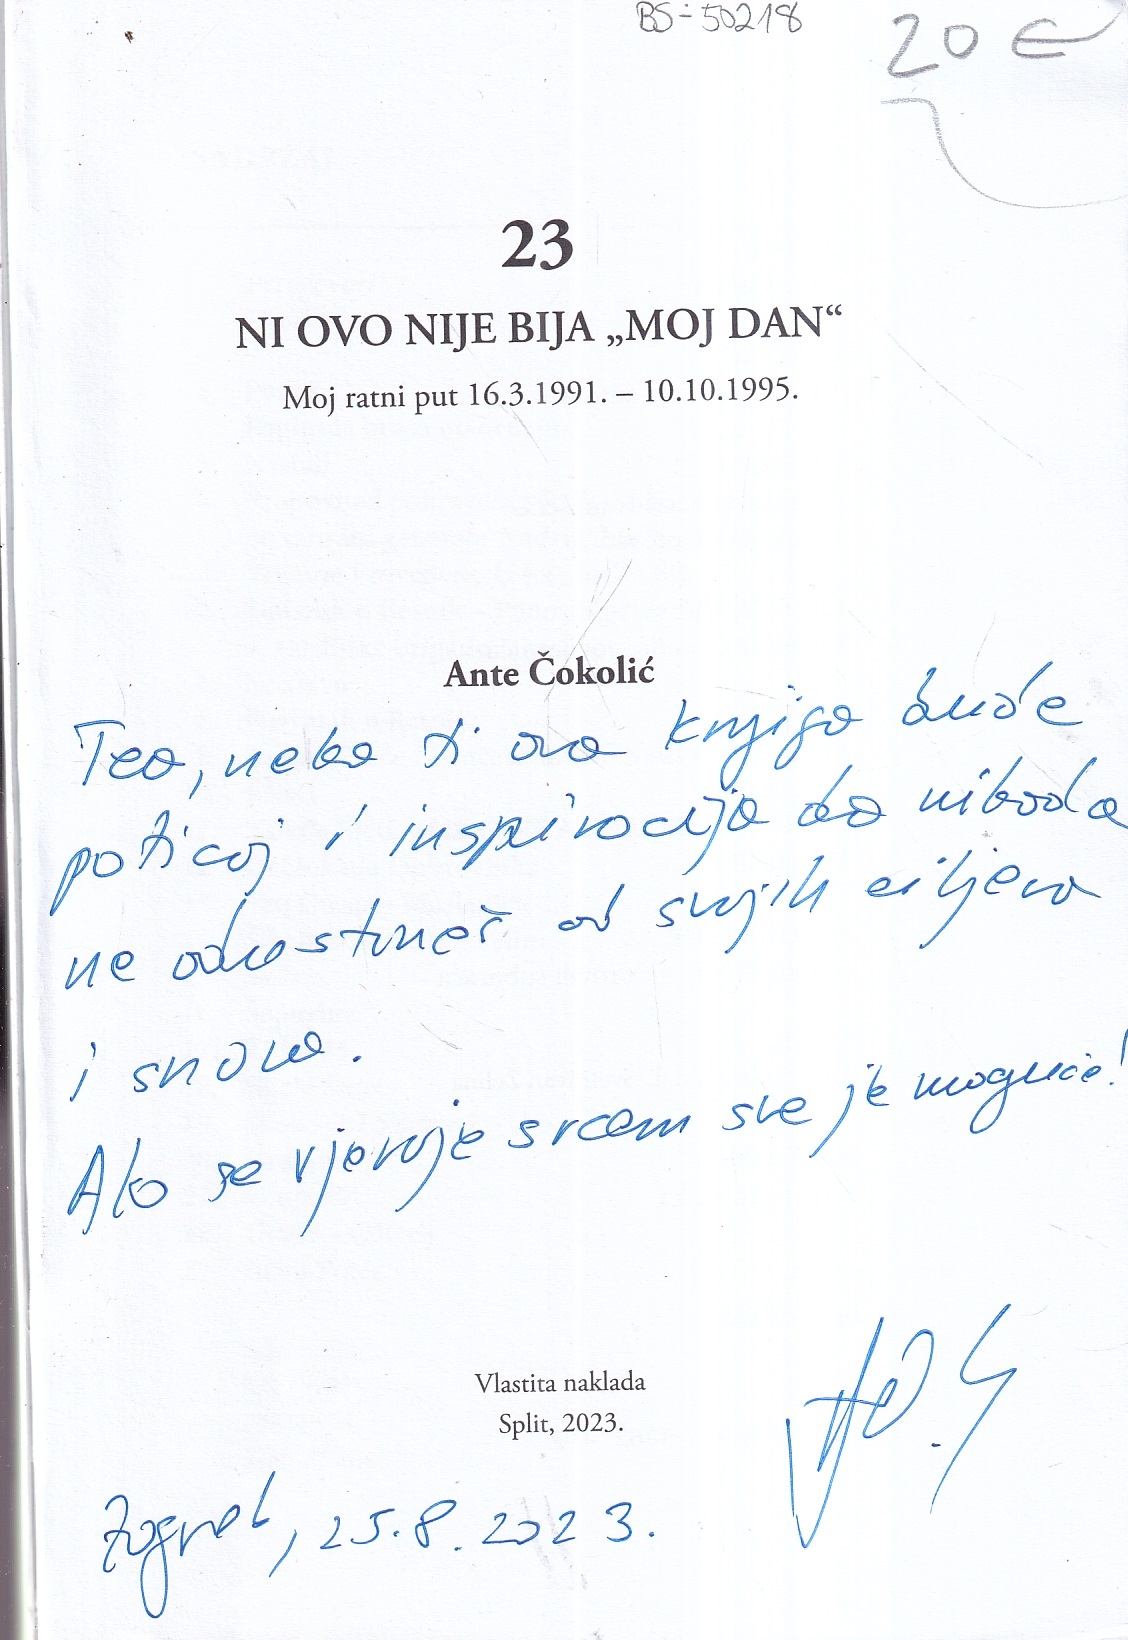 BS-50218
20 €
23
NI OVO NIJE BIJA „MOJ DAN“
Moj ratni put 16.3.1991. – 10.10.1995.
Ante Čokolić
Teo, neka ti ova knjiga bude
poticaj i inspiracija da nikada
ne odustaneš od svojih ciljeva
i snova.
Ako se vjeruje srcem sve je moguće!
Vlastita naklada
Split, 2023.
Zagreb, 25.8.2023.